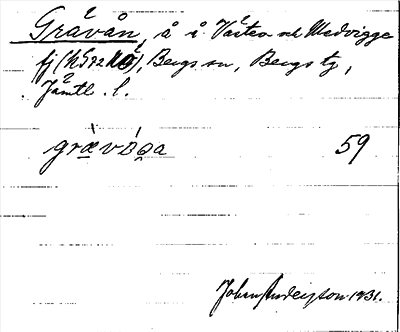 Gråvån, å i Västra och Medvigge
fj (h 592 NO), Bergs sn, Bergs tg,
Jämtl. l.
grävåga 59
Johan Anderson 1931.